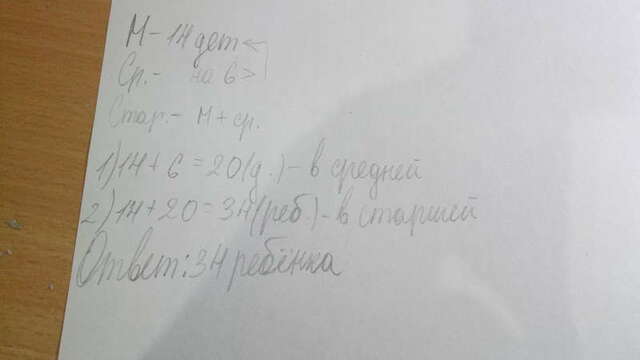 М - 14 дет
Ср. - на 6 >
Стар. - М + ср.
1) 14 + 6 = 20 (д.) - в средней
2) 14 + 20 = 34 (реб.) - в старшей
Ответ: 34 ребёнка